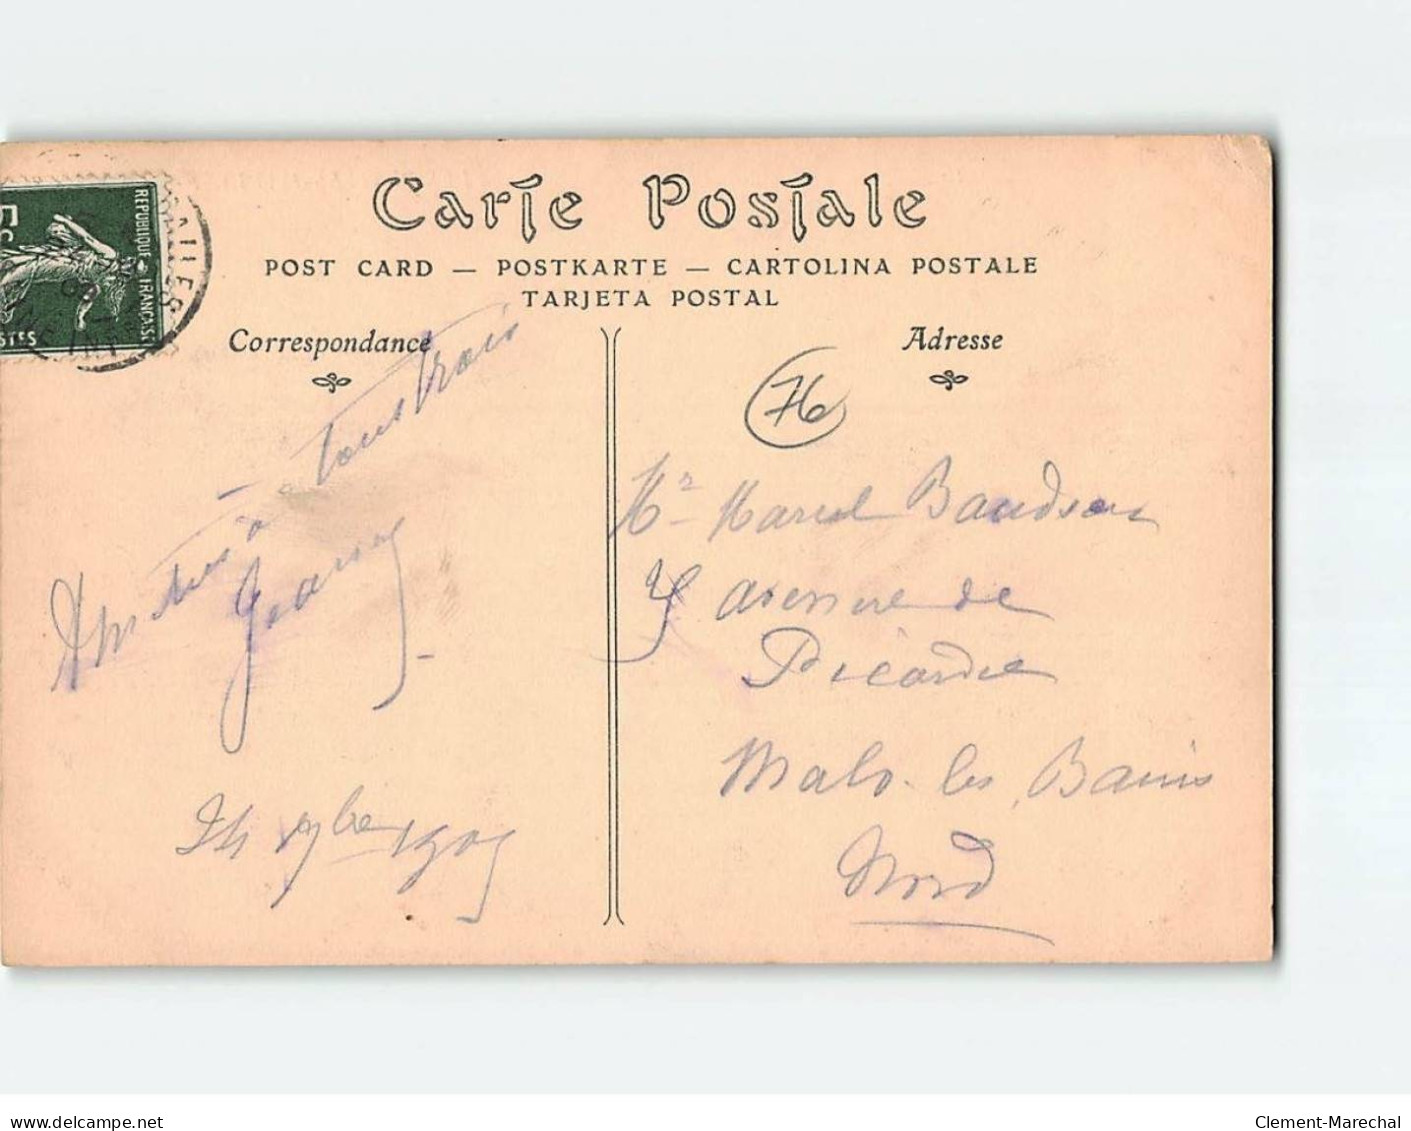 Carte Postale
POST CARD — POSTKARTE — CARTOLINA POSTALE
TARJETA POSTAL
Correspondance
Adresse
5c
REPUBLIQUE FRANÇAISE
POSTES
76
Amitiés à tous trois
Mr Marcel Baudson
avenue de
Picardie
Malo-les-Bains
Nord
7bre 1909
delcampe.net
Clement-Marechal